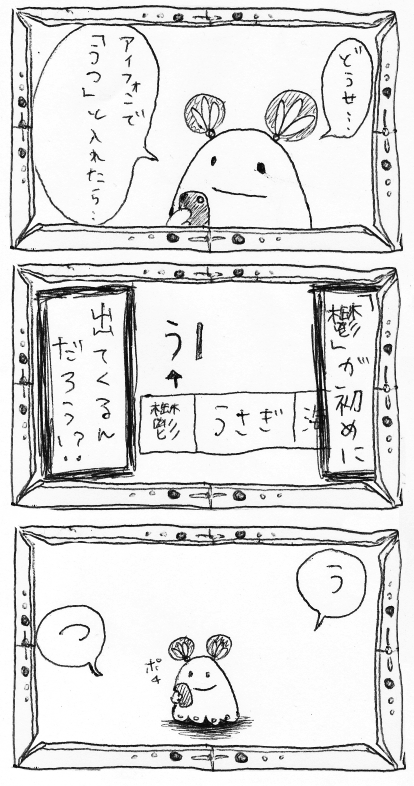 どうせ…
アイフォンで
「うつ」と入れたら…
「鬱」が初めに
う
鬱
うさぎ
海
出てくるん
だろう!?
う
つ
ポチ